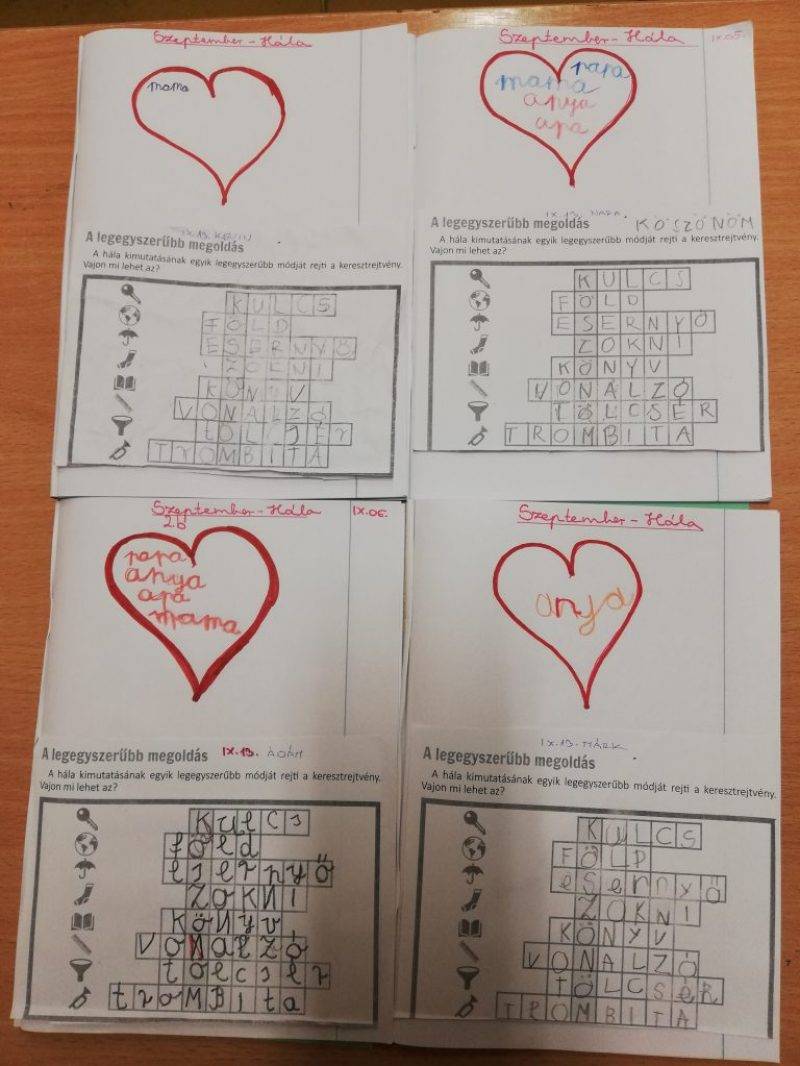 Szeptember - Hála
mama
IX.13.
A legegyszerűbb megoldás
A hála kimutatásának egyik legegyszerűbb módját rejti a keresztrejtvény.
Vajon mi lehet az?
KULCS
FÖLD
ESERNYŐ
ZOKNI
KÖNYV
VONALZÓ
tÖLCSÉr
TrOMBITA
Szeptember - Hála
IX.05.
papa
mama
anya
apa
IX.13.
A legegyszerűbb megoldás
KÖSZÖNÖM
A hála kimutatásának egyik legegyszerűbb módját rejti a keresztrejtvény.
Vajon mi lehet az?
KULCS
FÖLD
ESERNYŐ
ZOKNI
KÖNYV
VONALZÓ
TÖLCSÉR
TROMBITA
Szeptember - Hála
IX.06.
2.b
papa
anya
apa
mama
A legegyszerűbb megoldás
IX.13. ÁDÁM
A hála kimutatásának egyik legegyszerűbb módját rejti a keresztrejtvény.
Vajon mi lehet az?
Kulcs
föld
esernyő
ZOKNI
Könyv
VoNalzó
tölcsér
troMBita
Szeptember - Hála
anya
IX.13. MÁRK
A legegyszerűbb megoldás
A hála kimutatásának egyik legegyszerűbb módját rejti a keresztrejtvény.
Vajon mi lehet az?
KULCS
FÖLD
eSernyő
ZOKNI
KÖNYV
VONALZÓ
tÖLCSéR
TROMBITA